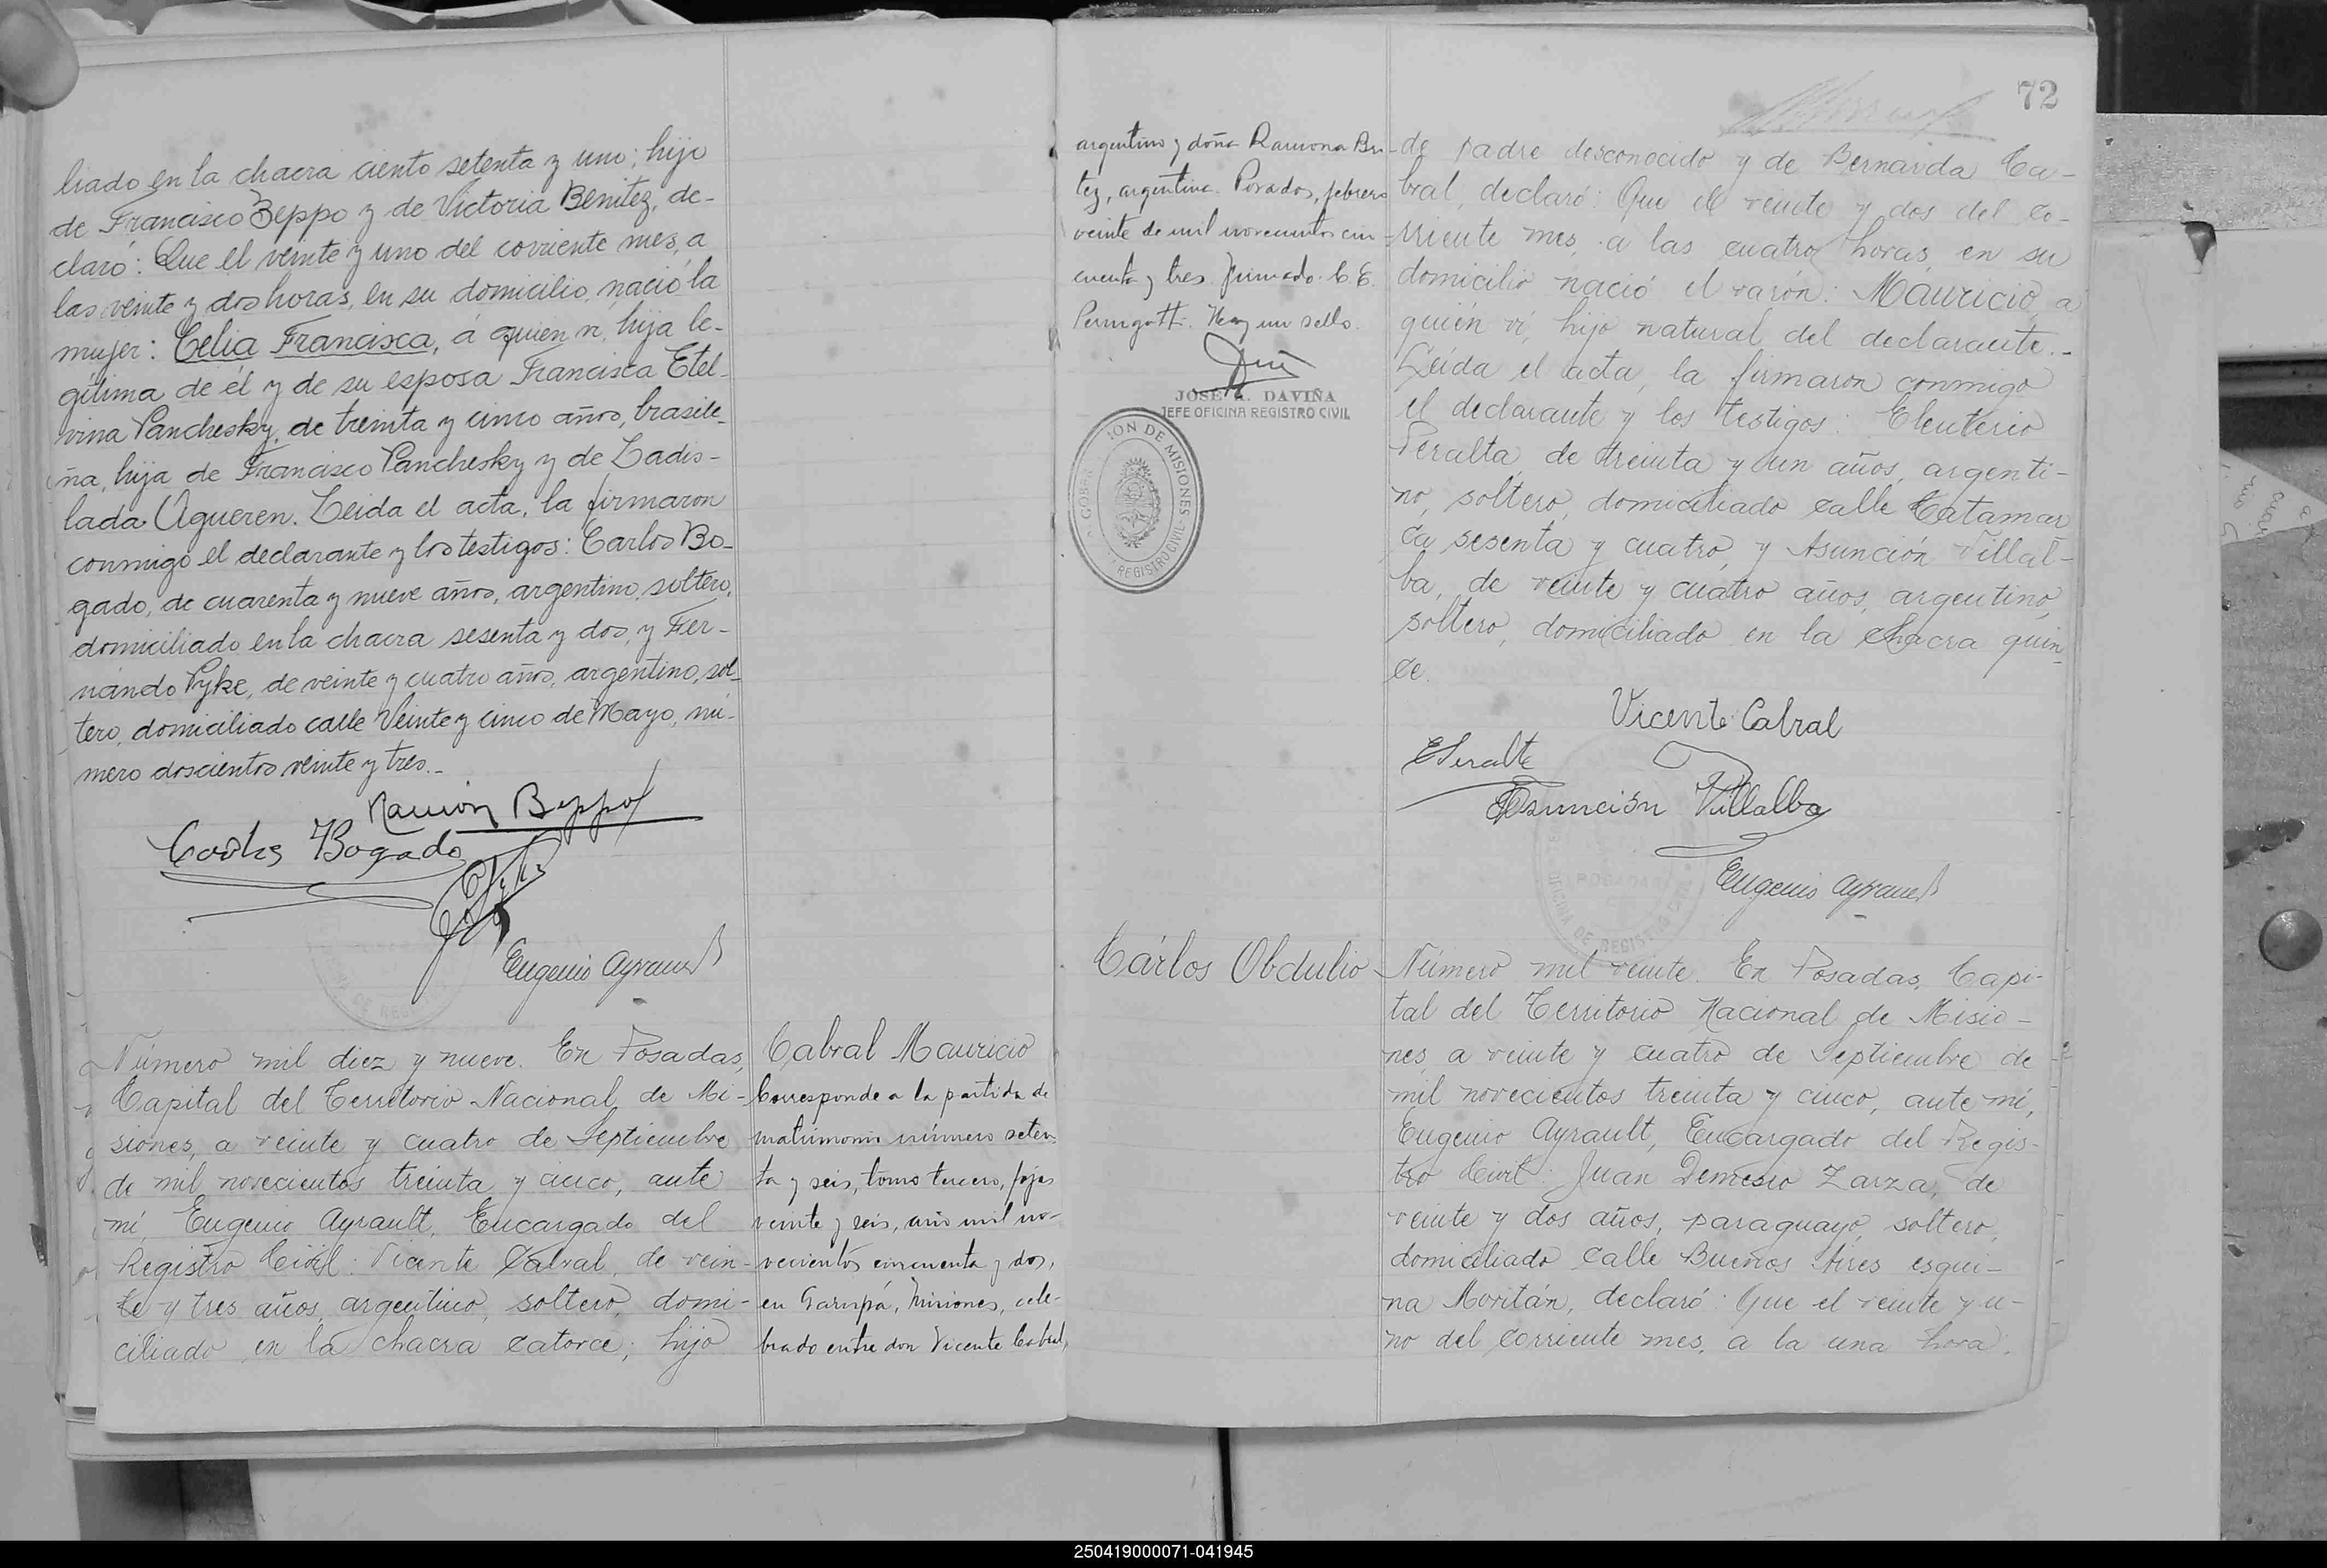 liado en la chacra ciento setenta y uno; hijo
de Francisco Beppo y de Victoria Benitez, de-
claró: Que el veinte y uno del corriente mes, a
las veinte y dos horas, en su domicilio, nació la
mujer: Celia Francisca, á quien vi, hija le-
gítima de él y de su esposa Francisca Etel-
vina Panchesky, de treinta y cinco años, brasile-
ña, hija de Francisco Panchesky y de Ladis-
lada Agueren. Leida el acta, la firmaron
conmigo el declarante y los testigos: Carlos Bo-
gado, de cuarenta y nueve años, argentino, soltero,
domiciliado en la chacra sesenta y dos, y Fer-
nándo Pyke, de veinte y cuatro años, argentino, sol-
tero, domiciliado calle Veinte y cinco de Mayo, nú-
mero doscientos veinte y tres.-
Ramón Beppo
Carlos Bogado
Eugenio Ayrault
Número mil diez y nueve. En Posadas,
Capital del Territorio Nacional de Mi-
siones, a veinte y cuatro de Septiembre
de mil novecientos treinta y cinco, ante
mí, Eugenio Ayrault, Encargado del
Registro Civil: Vicente Cabral, de vein-
te y tres años, argentino, soltero, domi-
ciliado en la chacra catorce; hijo
Cabral Mauricio
Corresponde a la partida de
matrimonio número seten-
ta y seis, tomo tercero, fojas
veinte y seis, año mil no-
vecientos cincuenta y dos,
en Garupá, Misiones, cele-
brado entre don Vicente Cabral,
argentino y doña Ramona Bri-
tez, argentina. Posadas, febrero
veinte de mil novecientos cin-
cuenta y tres. Firmado: C. E.
Perugotti. Hay un sello.
JOSE A. DAVIÑA
JEFE OFICINA REGISTRO CIVIL
GOBER ION DE MISIONES
REGISTRO CIVIL
72
de padre desconocido y de Bernarda Ca-
bral, declaró: Que el veinte y dos del co-
rriente mes, a las cuatro horas, en su
domicilio nació el varón: Mauricio, a
quién ví, hijo natural del declarante.-
Leída el acta, la firmaron conmigo
el declarante y los testigos: Eleuterio
Peralta, de treinta y un años, argenti-
no, soltero, domiciliado calle Catamar
ca sesenta y cuatro, y Asunción Villal-
ba, de veinte y cuatro años, argentino,
soltero, domiciliado en la chacra quin-
ce.
Vicente Cabral
EPeralta
Asunción Villalba
POSADAS
OFICINA DE REGISTRO CIVIL
Eugenio Ayrault
Cárlos Obdulio
Número mil veinte. En Posadas, Capi-
tal del Territorio Nacional de Misio-
nes, a veinte y cuatro de Septiembre de
mil novecientos treinta y cinco, ante mí,
Eugenio Ayrault, Encargado del Regis-
tro Civil: Juan Demesio Zarza, de
veinte y dos años, paraguayo, soltero,
domiciliado calle Buenos Aires esqui-
na Moritán, declaró: Que el veinte y u-
no del corriente mes, a la una hora,
250419000071-041945